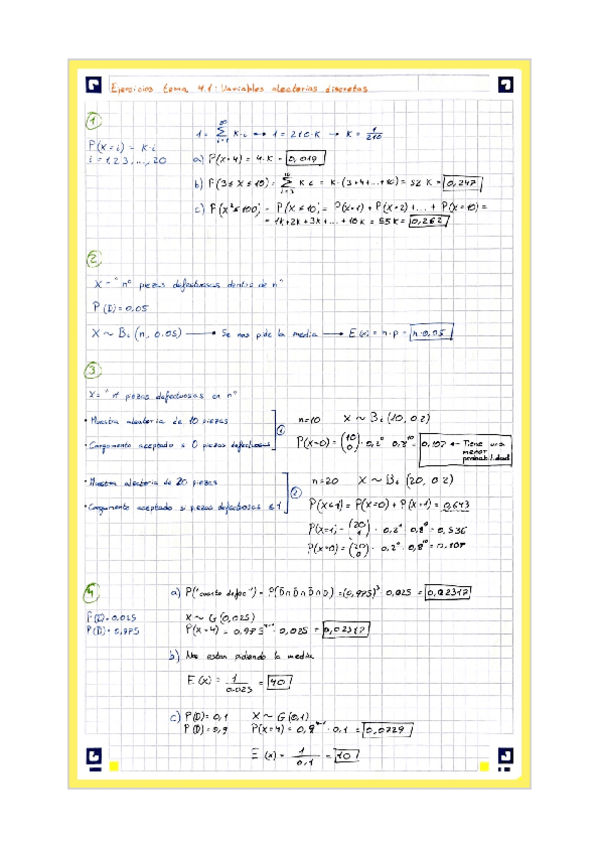 Ejercicios tema 4.1: Variables aleatorias discretas
1
P(X=i) = K·i
i = 1,2,3,...,20
1 = Σ K·i → 1 = 210·K → K = 1/210
a) P(X=4) = 4·K = 0,019
b) P(3≤X≤10) = Σ K·i = K·(3+4+...+10) = 52 K = 0,247
c) P(X²≤100) = P(X≤10) = P(X=1) + P(X=2) + ... + P(X=10) =
= 1K+2K+3K+...+10K = 55K = 0,262
2
X = "nº piezas defectuosas dentro de n"
P(D) = 0,05
X ~ Bi(n, 0.05) → Se nos pide la media → E(x) = n·p = n·0,05
3
X = "nº piezas defectuosas en n"
• Muestra aleatoria de 10 piezas
• Cargamento aceptado si 0 piezas defectuosas
1
n=10 X ~ Bi(10, 0.2)
P(X=0) = (10 0) · 0,2⁰ · 0,8¹⁰ = 0,107 ← Tiene una menor probabilidad
• Muestra aleatoria de 20 piezas
• Cargamento aceptado si piezas defectuosas ≤1
2
n=20 X ~ Bi(20, 0.2)
P(X≤1) = P(X=0) + P(X=1) = 0,643
P(X=1) = (20 1) · 0,2¹ · 0,8 = 0,536
P(X=0) = (20 0) · 0,2⁰ · 0,8 = 0,107
4
P(D) = 0,025
P(D̄) = 0,975
a) P("cuarto defec") = P(D̄∩D̄∩D̄∩D) = (0,975)³ · 0,025 = 0,02317
X ~ G(0,025)
P(X=4) = 0,975⁴⁻¹ · 0,025 = 0,02317
b) Nos están pidiendo la media
E(x) = 1/0.025 = 40
c) P(D) = 0,1 X ~ G(0,1)
P(D̄) = 0,9 P(X=4) = 0,9⁴⁻¹ · 0,1 = 0,0729
E(x) = 1/0,1 = 10